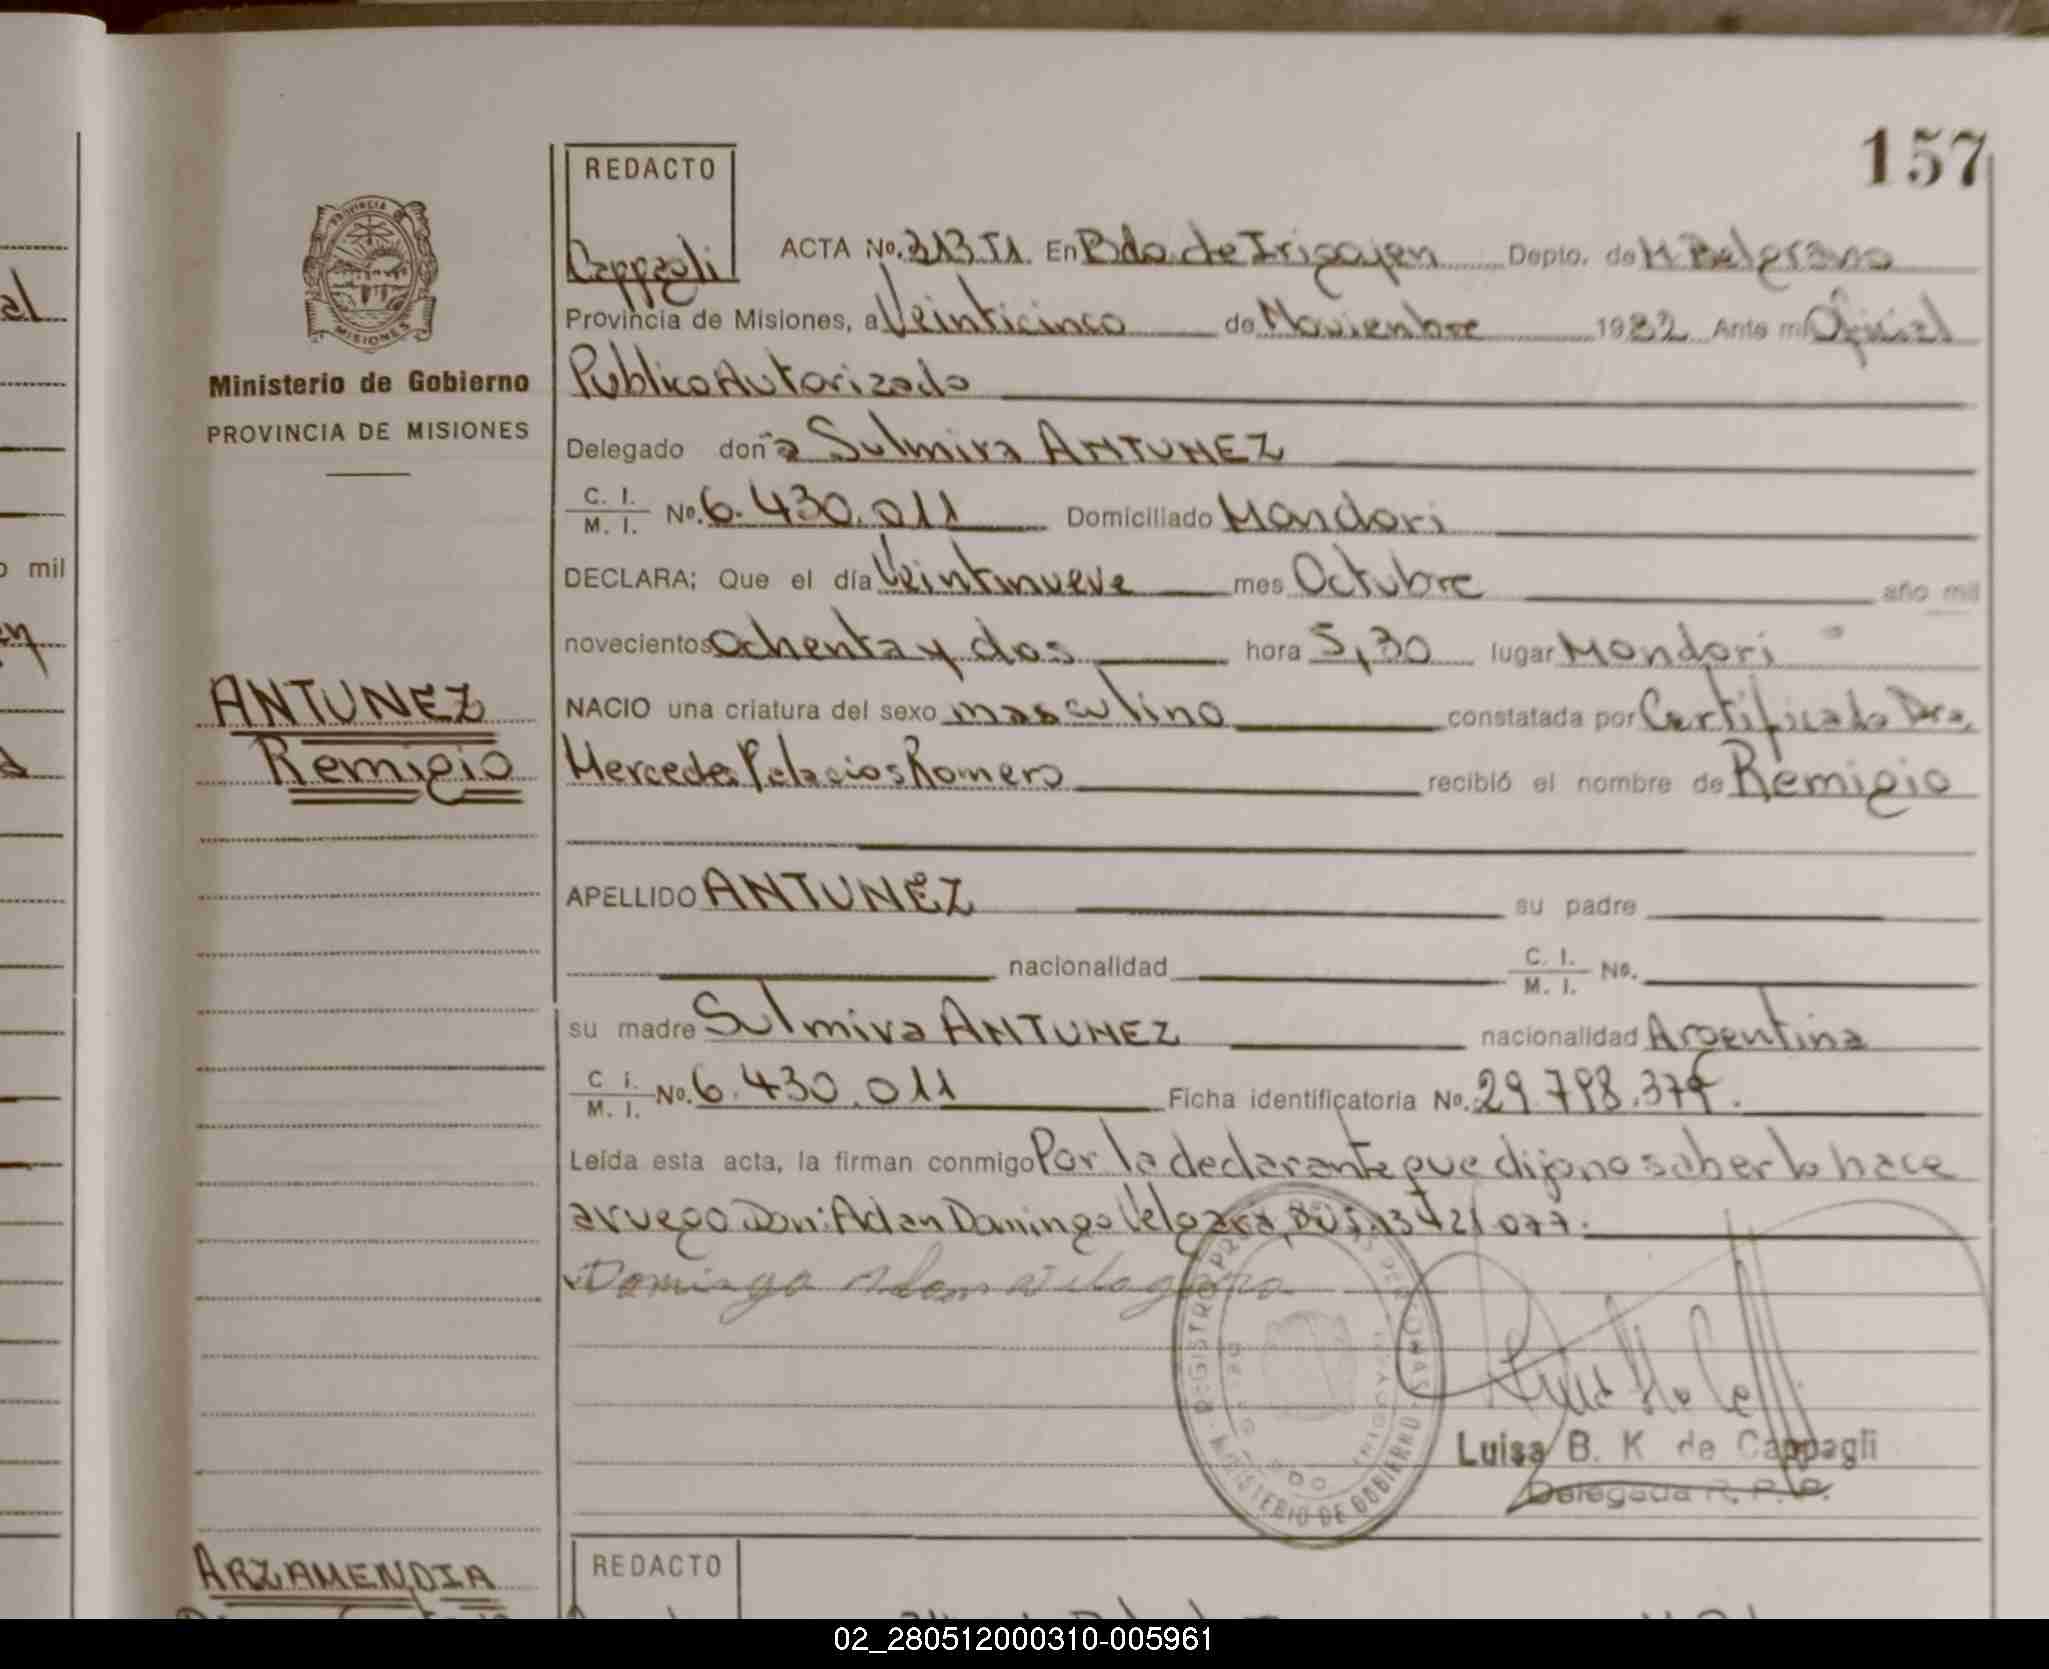 157
REDACTO
Cappagli
ACTA No. 313 T1. En Bdo. de Irigoyen Depto. de M Belgrano
Provincia de Misiones, a Veinticinco de Noviembre 1982 Ante mi Oficial
Publico Autorizado
PROVINCIA DE MISIONES
Ministerio de Gobierno
PROVINCIA DE MISIONES
Delegado doña Sulmira ANTUNEZ
C. I. / M. I. No. 6.430.011 Domiciliado Mondori
DECLARA; Que el día Veintinueve mes Octubre año mil
novecientos Ochenta y dos hora 5,30 lugar Mondori
ANTUNEZ
Remigio
NACIO una criatura del sexo masculino constatada por Certificado Dra.
Mercedes Palacios Romero recibló el nombre de Remigio
APELLIDO ANTUNEZ su padre
nacionalidad C. I. / M. I. No.
su madre Sulmira ANTUNEZ nacionalidad Argentina
C I. / M. I. No. 6.430.011 Ficha identificatoria No. 29.798.379.
Leída esta acta, la firman conmigo Por la declarante que dijo no saber lo hace
a ruego Don: Adan Domingo Velgara, 13421077.
Domingo Adan
REGISTRO PERSONAS
MINISTERIO DE GOBIERNO
Luisa B. K de Cappagli
Delegada R. P. P.
ARZAMENDIA
REDACTO
al
o mil
02_280512000310-005961